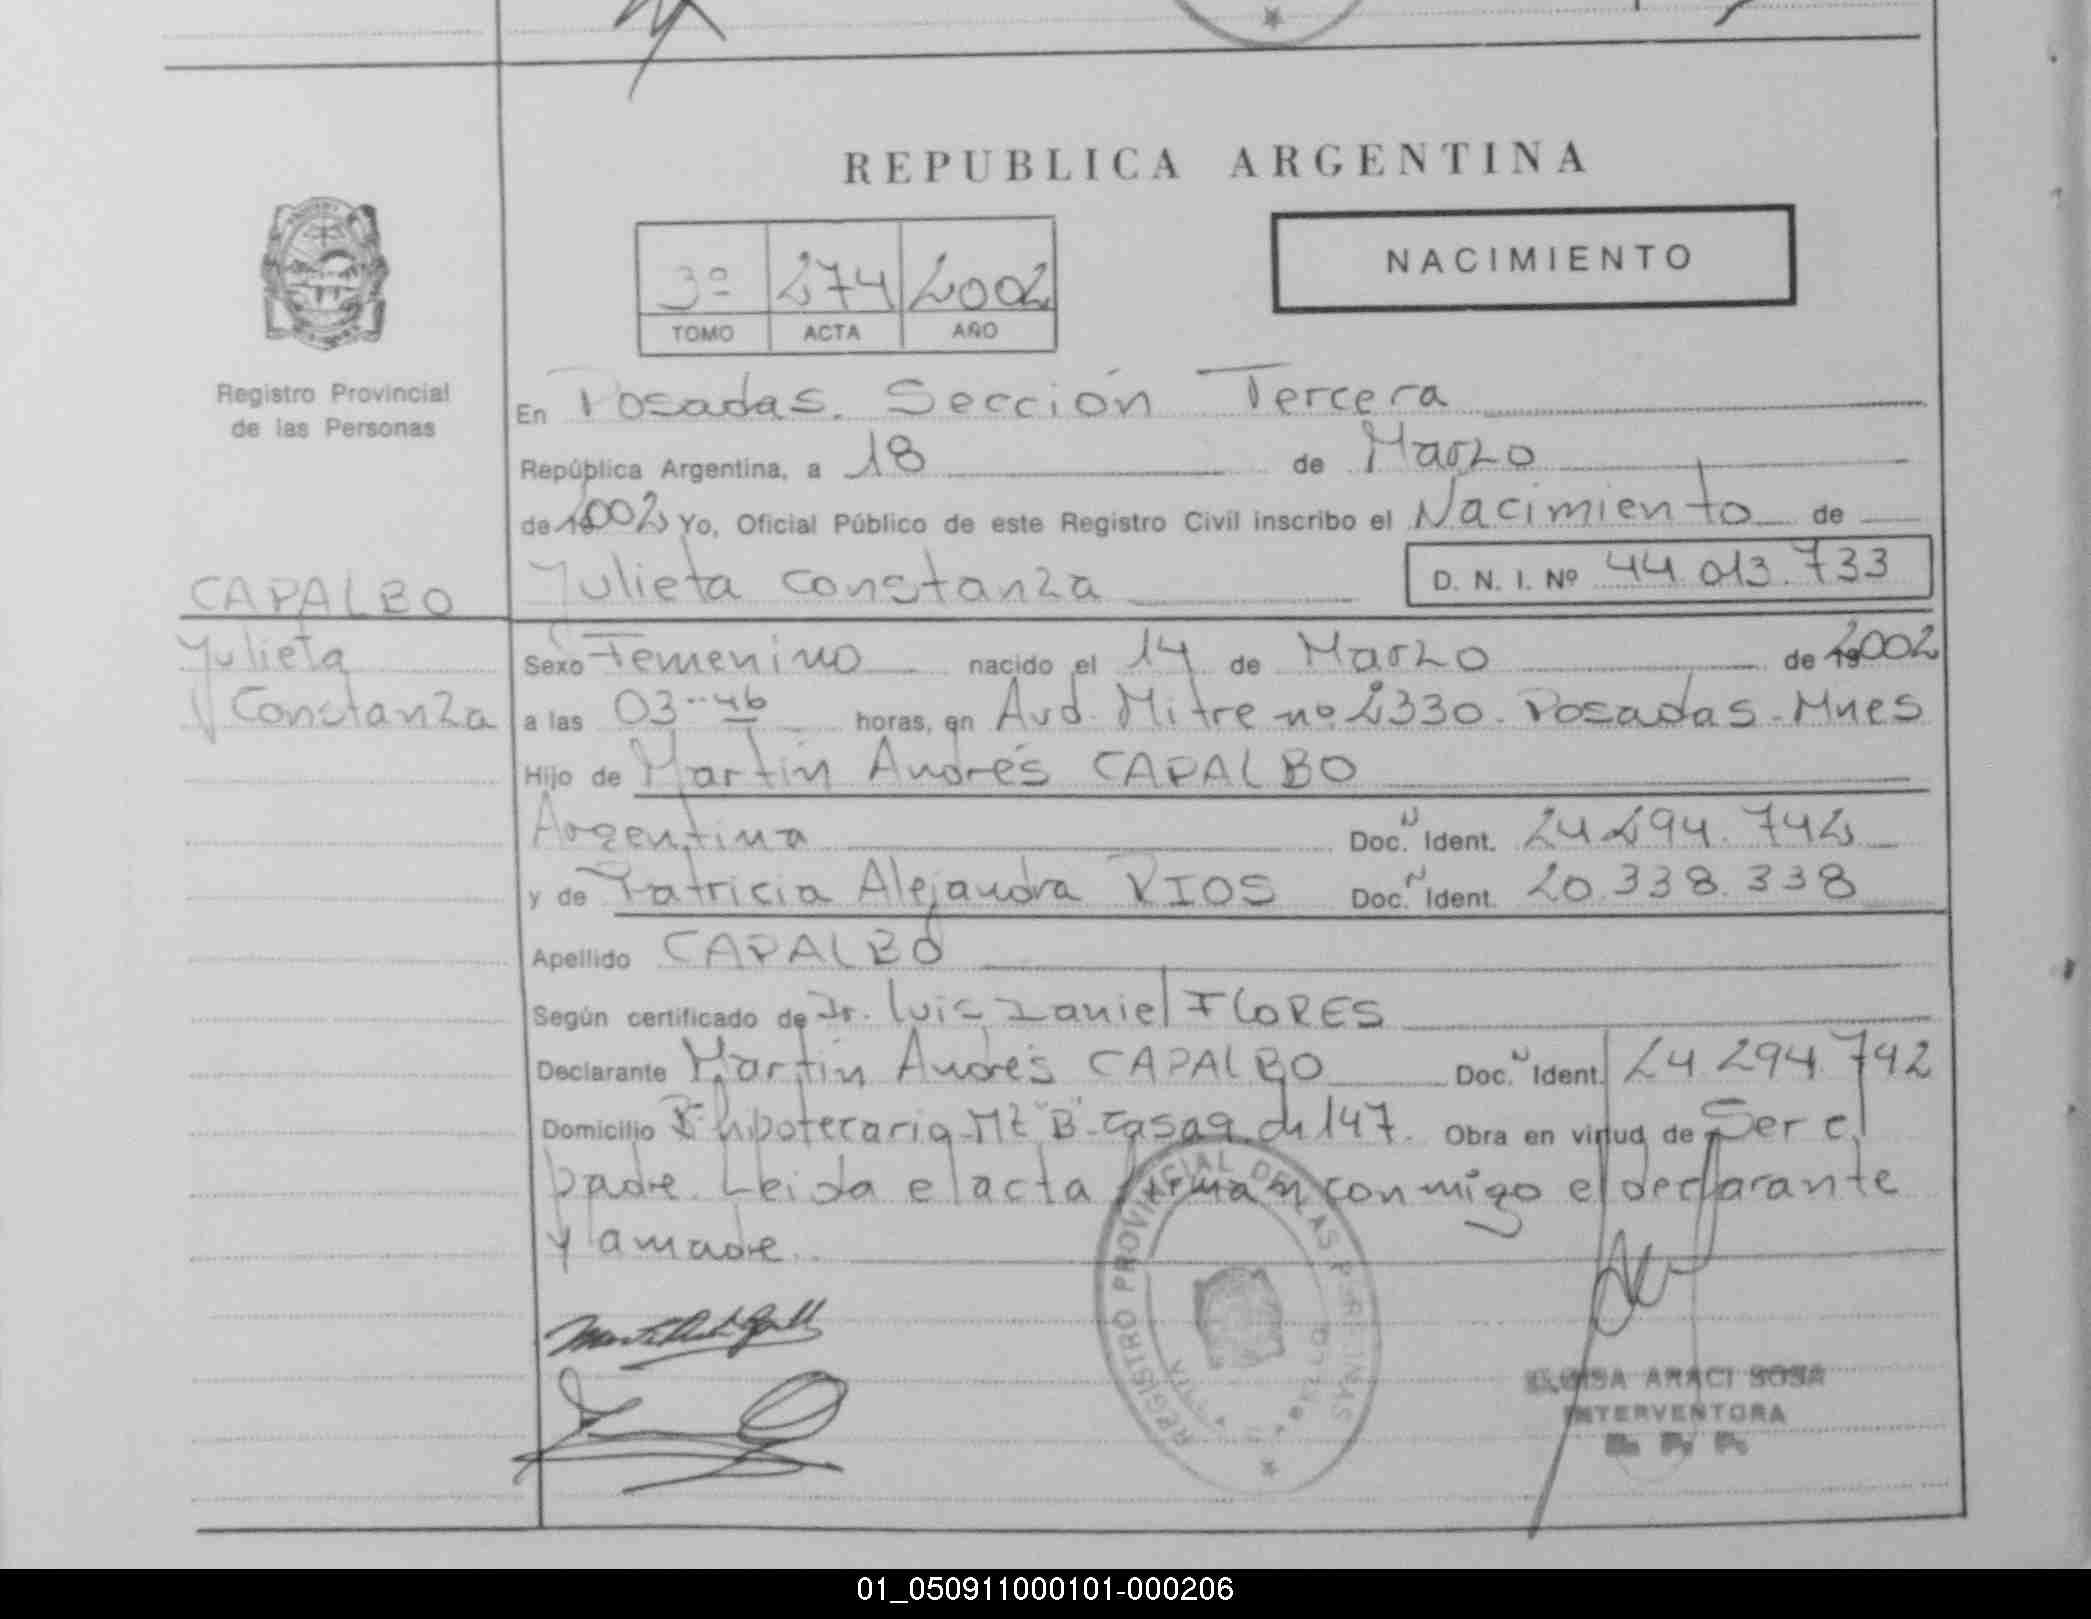 REPUBLICA ARGENTINA
NACIMIENTO
3º 274 2002
TOMO ACTA AÑO
Registro Provincial
de las Personas
En Posadas. Sección Tercera
República Argentina, a 18 de Marzo
de 2002 Yo, Oficial Público de este Registro Civil inscribo el Nacimiento de
Julieta Constanza D. N. I. Nº 44.013.733
CAPALBO
Julieta
Constanza
Sexo Femenino nacido el 14 de Marzo de 2002
a las 03--46 horas, en Avd. Mitre nº 2330. Posadas-Mnes
Hijo de Martín Andrés CAPALBO
Argentina Doc. N Ident. 24.294.742
y de Patricia Alejandra RIOS Doc. N Ident. 20.338.338
Apellido CAPALBO
Según certificado de Dr. Luis Daniel FLORES
Declarante Martín Andrés CAPALBO Doc. N Ident. 24.294.742
Domicilio Bº hipotecario-Mz "B"-casa 147. Obra en virtud de Ser el
padre. Leida el acta firman conmigo el declarante
y la madre.
REGISTRO PROVINCIAL DE LAS PERSONAS
ARACI SOSA
INTERVENTORA
01_050911000101-000206